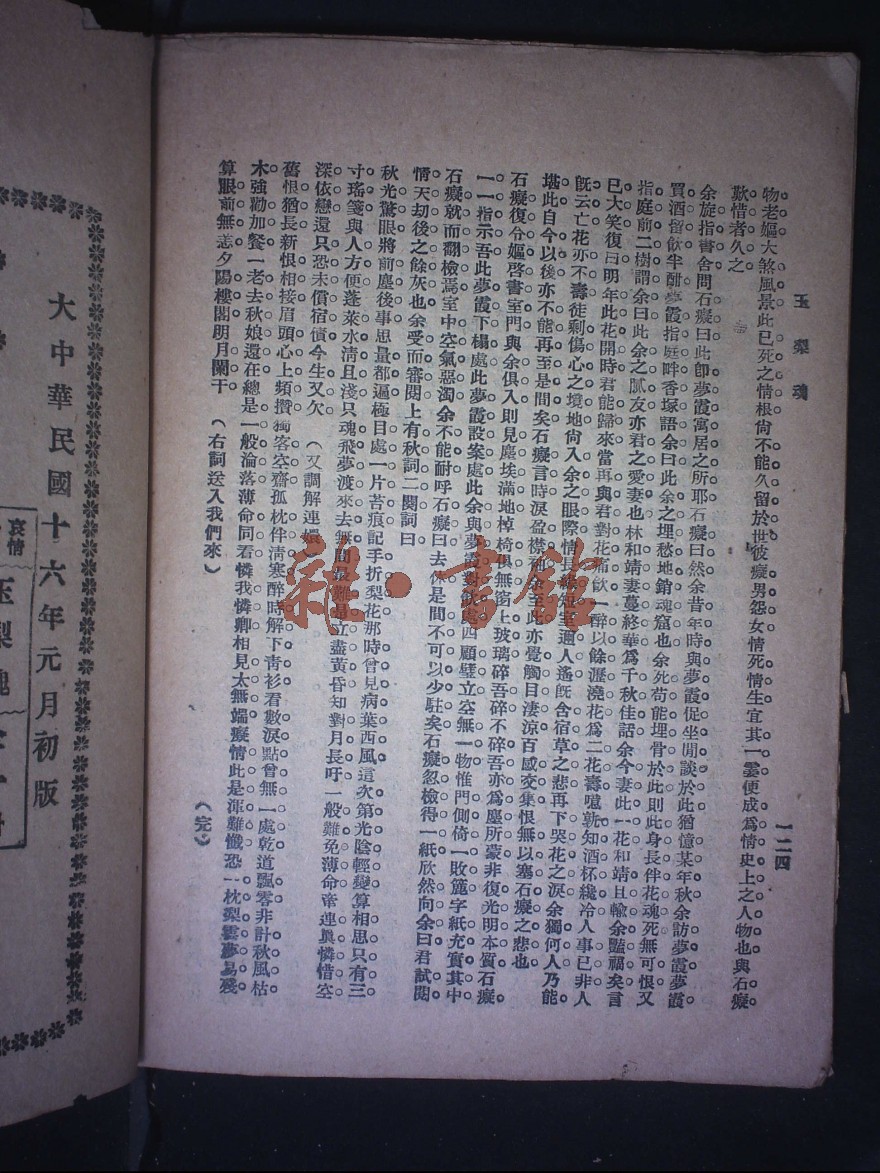 玉梨魂
一二四
物。老嫗大煞風景此已死之情根尙不能久留於世彼癡男怨女情死情生宜其一霎便成爲情史上之人物也與石癡
歎惜者久之
余旋指書舍問石癡曰此卽夢霞寓居之所耶石癡曰然余昔年時與夢霞促坐閒談於此猶憶某年秋余訪夢霞夢霞
買酒留飲半酣夢霞指庭畔香塚語余曰此余之埋愁地銷魂窟也余死苟能埋骨於此則此身長伴花魂死無可恨又
指庭前二樹謂余曰此余之膩友亦君之愛妻也林和靖妻蔓終華爲千秋佳話余今妻此一花和靖且輸余豔福矣言
已大笑復曰明年此花開時君能歸來當再與君對花痛飲一醉以餘瀝澆花爲二花壽噫孰知酒杯纔冷人事已非人
旣云亡花亦不壽徒剩傷心之境地尙入余之眼際情長 短室邇人遙旣含宿草之悲再下哭花之淚余獨何人乃能
堪此自今以後亦不能再至是間矣石癡言時淚盈襟袖余至此亦覺觸目淒涼百感交集恨無以塞石癡之悲也
石癡復令嫗啓書室門與余俱入則見塵埃滿地棹椅俱無窗上玻璃碎吾碎不碎吾亦爲塵所蒙非復光明本質石癡
一一指示吾此夢霞下榻處此夢霞設案處此余與夢霞對飲處四顧壁立空無一物惟門側倚一敗簏字紙充實其中
石癡就而翻檢焉室中空氣惡濁余不能耐呼石癡曰去休是間不可以少駐矣石癡忽檢得一紙欣然向余曰君試閱
情天劫後之餘灰也余受而審閱上有秋詞二闋詞曰
秋光驚眼將前塵後事思量都遍極目處一片苔痕記手折梨花那時曾見病葉西風這次第光陰輕變算相思只有三
寸瑤箋與人方便蓬萊水淸且淺只魂飛夢渡來去無間最難是立盡黃昏知對月長吁一般難免薄命帝連眞憐惜空
深依戀還只恐未償宿債今生又欠
（又調解連嬛）
舊恨猶長新恨相接眉頭心上頻攢獨客空齋孤枕伴淸寒醉時解下靑衫看數淚點曾無一處乾道飄零非計秋風枯
木強勸加餐一老去秋娘還在總是一般淪落薄命同看憐我憐卿相見太無端癡情此是渾難懺恐一枕梨雲夢易殘
算眼前無恙夕陽樓閣明月闌干
（右詞送入我們來）
（完）
大中華民國十六年元月初版
哀情
玉梨魂
雜·書館